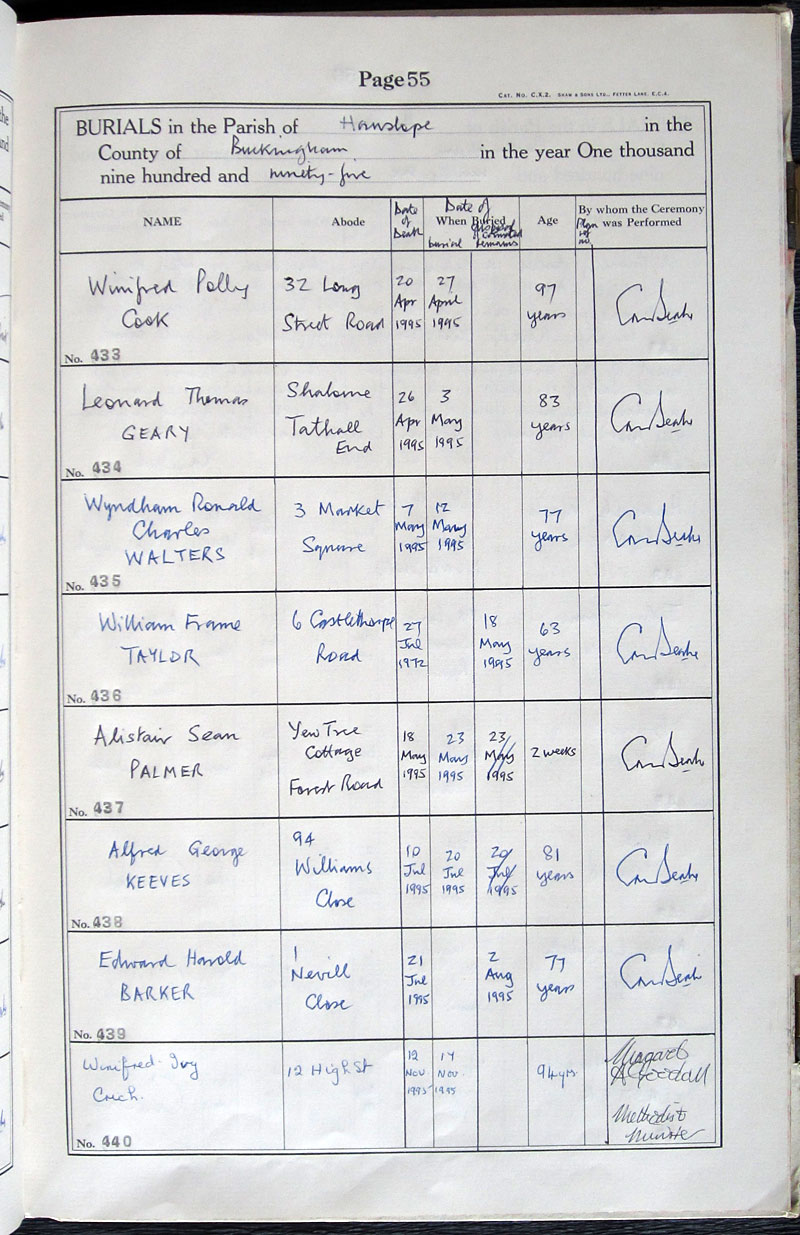 Page 55
CAT. No. C.X.2. SHAW & SONS LTD., FETTER LANE, E.C.4.
BURIALS in the Parish of Hanslope in the
County of Buckingham in the year One thousand
nine hundred and ninety-five
NAME Abode Date of Death Date of When Buried burial Cremated remains Age Plan ref no. By whom the Ceremony was Performed
Winifred Polly
Cook
32 Long
Street Road
20 Apr 1995
27 April 1995
97 years
No. 433
Leonard Thomas
GEARY
Shalome
Tathall
End
26 Apr 1995
3 May 1995
83 years
No. 434
Wyndham Ronald
Charles
WALTERS
3 Market
Square
7 May 1995
12 May 1995
77 years
No. 435
William Frame
TAYLOR
6 Castlethorpe
Road
27 Jul 1972
18 May 1995
63 years
No. 436
Alistair Sean
PALMER
Yew Tree
Cottage
Forest Road
18 May 1995
23 May 1995
23 May 1995
2 weeks
No. 437
Alfred George
KEEVES
94
Williams
Close
10 Jul 1995
20 Jul 1995
20 Jul 1995
81 years
No. 438
Edward Harold
BARKER
1
Nevill
Close
21 Jul 1995
2 Aug 1995
77 years
No. 439
Winifred Ivy
Crich.
12 High St
12 Nov 1995
17 Nov. 1995
94 yrs.
Margaret
A Goodall
Methodist
Minister
No. 440